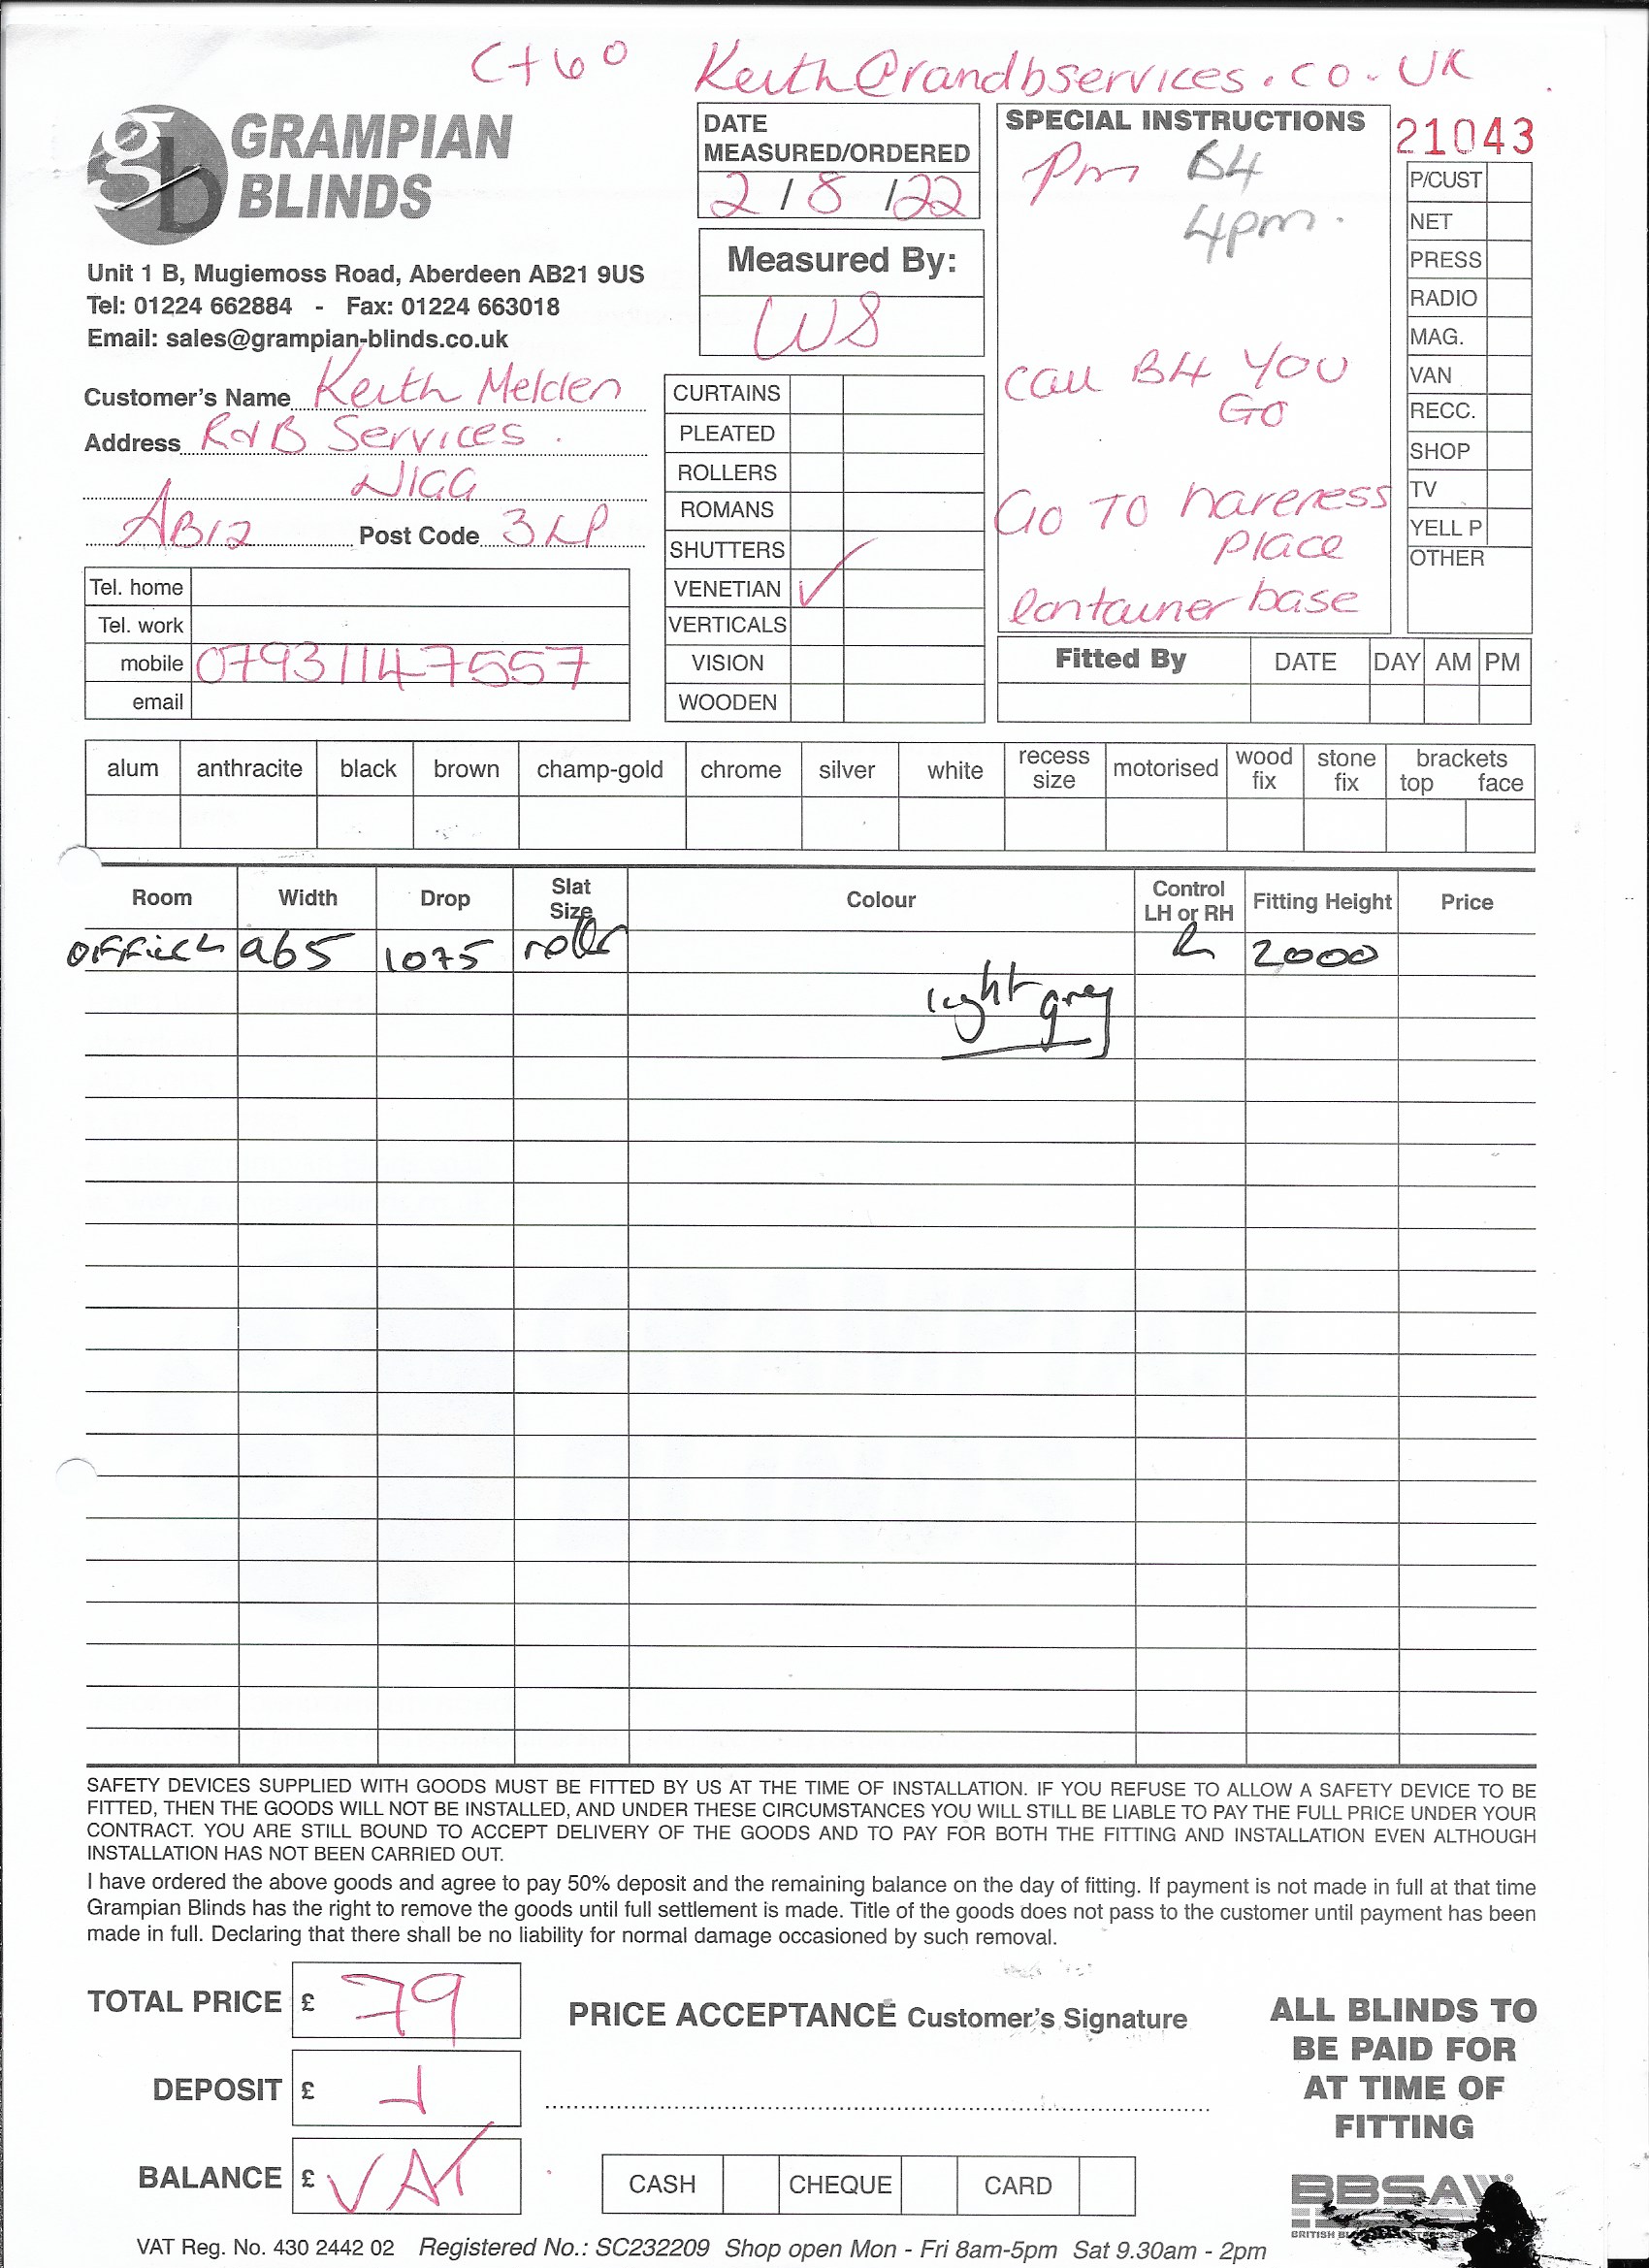 C+60 Keith@randbservices.co.uk
GRAMPIAN
BLINDS
Unit 1 B, Mugiemoss Road, Aberdeen AB21 9US
Tel: 01224 662884 - Fax: 01224 663018
Email: sales@grampian-blinds.co.uk
DATE
MEASURED/ORDERED
2 / 8 / 22
Measured By:
WS
SPECIAL INSTRUCTIONS
Pm B4
4pm.
Call B4 YOU
GO
Go TO hareness
place
container base
21043
P/CUST
NET
PRESS
RADIO
MAG.
VAN
RECC.
SHOP
TV
YELL P
OTHER
Customer's Name Keith Melden
Address R&B Services.
NIGG
AB12 Post Code 3LP
Tel. home
Tel. work
mobile 07931147557
email
CURTAINS
PLEATED
ROLLERS
ROMANS
SHUTTERS
VENETIAN ✓
VERTICALS
VISION
WOODEN
Fitted By DATE DAY AM PM
alum anthracite black brown champ-gold chrome silver white recess size motorised wood fix stone fix brackets top face
Room Width Drop Slat Size Colour Control LH or RH Fitting Height Price
965 1075 roller 2000
light grey
SAFETY DEVICES SUPPLIED WITH GOODS MUST BE FITTED BY US AT THE TIME OF INSTALLATION. IF YOU REFUSE TO ALLOW A SAFETY DEVICE TO BE
FITTED, THEN THE GOODS WILL NOT BE INSTALLED, AND UNDER THESE CIRCUMSTANCES YOU WILL STILL BE LIABLE TO PAY THE FULL PRICE UNDER YOUR
CONTRACT. YOU ARE STILL BOUND TO ACCEPT DELIVERY OF THE GOODS AND TO PAY FOR BOTH THE FITTING AND INSTALLATION EVEN ALTHOUGH
INSTALLATION HAS NOT BEEN CARRIED OUT.
I have ordered the above goods and agree to pay 50% deposit and the remaining balance on the day of fitting. If payment is not made in full at that time
Grampian Blinds has the right to remove the goods until full settlement is made. Title of the goods does not pass to the customer until payment has been
made in full. Declaring that there shall be no liability for normal damage occasioned by such removal.
TOTAL PRICE £ 79
DEPOSIT £
BALANCE £ VAT
PRICE ACCEPTANCE Customer's Signature
CASH CHEQUE CARD
ALL BLINDS TO
BE PAID FOR
AT TIME OF
FITTING
BBSA
BRITISH
VAT Reg. No. 430 2442 02 Registered No.: SC232209 Shop open Mon - Fri 8am-5pm Sat 9.30am - 2pm